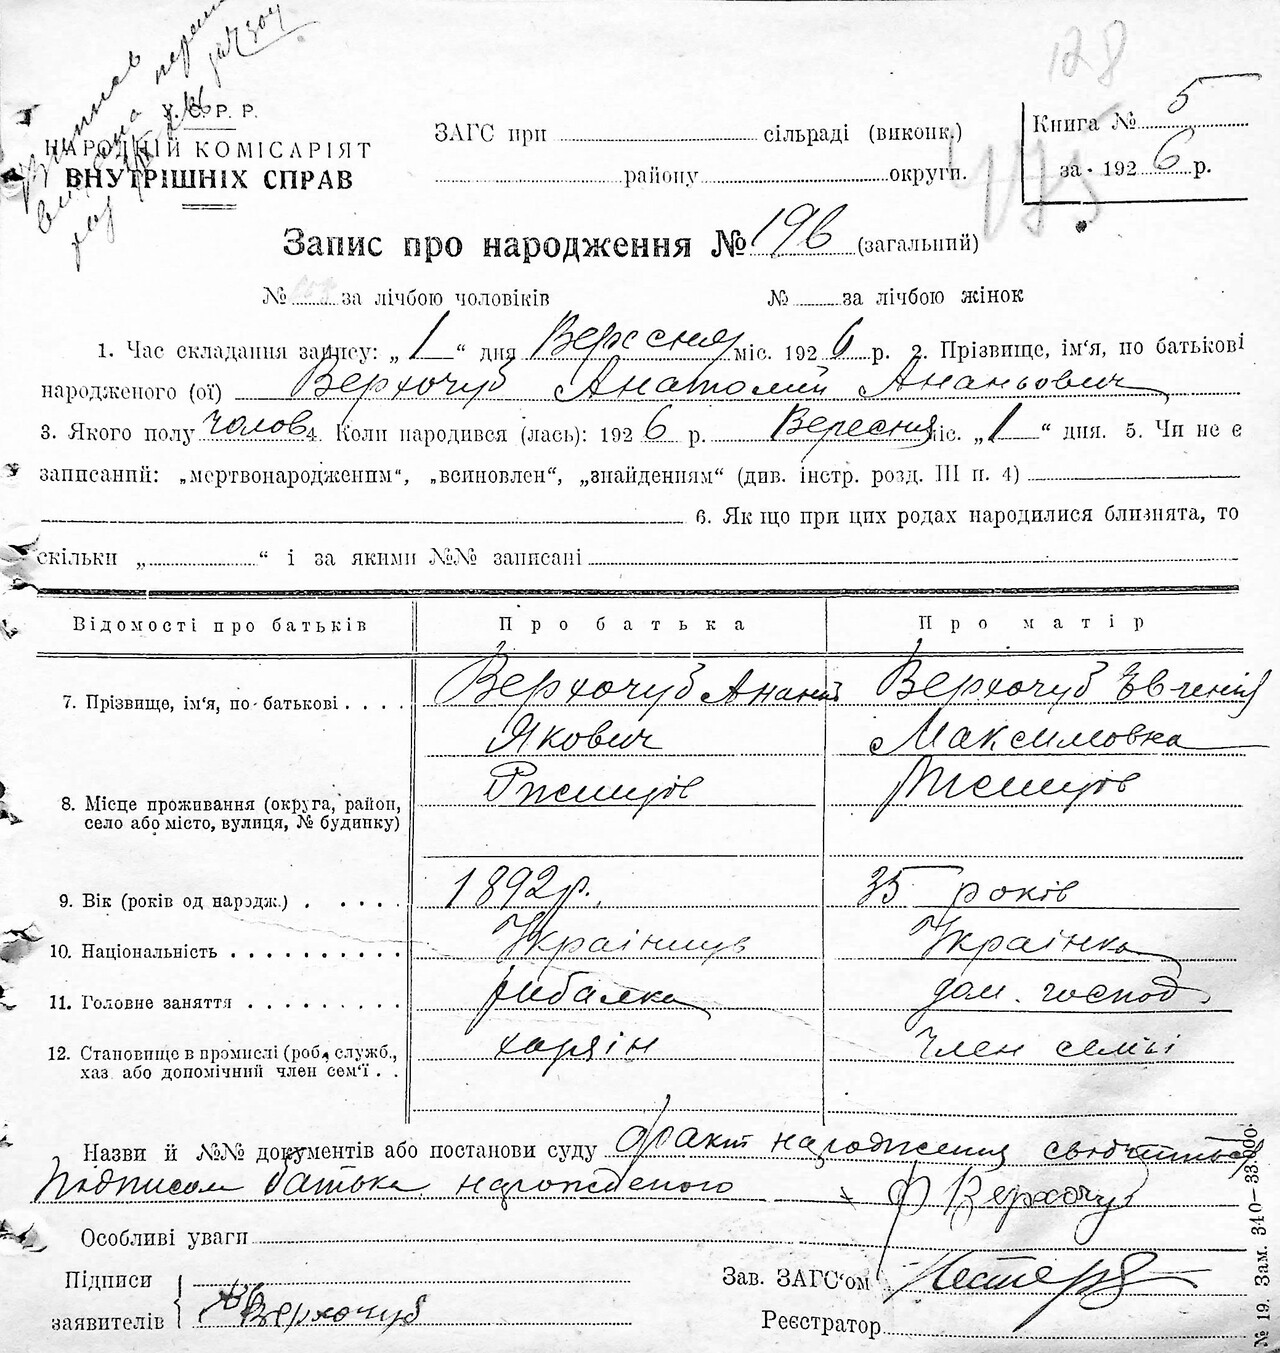 128
У.С.Р.Р.
НАРОДНІЙ КОМІСАРІЯТ
ВНУТРІШНІХ СПРАВ
ЗАГС при сільраді (виконк.)
району округи.
Книга № 5
за 1926 р.
475
Запис про народження № 196 (загальний)
№ за лічбою чоловіків № за лічбою жінок
1. Час складання запису: „1“ дня Вересня міс. 1926 р. 2. Прізвище, ім‘я, по батькові
народженого (ої) Верхочуб Анатолий Ананьович
3. Якого полу чолов 4. Коли народився (лась): 1926 р. Вересня міс. „1“ дня. 5. Чи не є
записаний: „мертвонародженим“, „всиновлен“, „знайденням“ (див. інстр. розд. III п. 4)
6. Як що при цих родах народилися близнята, то
скільки „ “ і за якими №№ записані
Відомості про батьків Про батька Про матір
7. Прізвище, ім‘я, по-батькові . . . . Верхочуб Ананій Якович Верхочуб Євгенія Максимовна
8. Місце проживання (округа, район, село або місто, вулиця, № будинку) Ржищів Ржищів
9. Вік (років од народж.) . . . . . 1892 р. 35 років
10. Національність . . . . . . . . . . Українець Українка
11. Головне заняття . . . . . . . . . рибалка дом. господ
12. Становище в промислі (роб., служб., хаз. або допомічний член сем‘ї . . хазяін Член семьі
Назви й №№ документів або постанови суду факт народження свідчиться
подписом батька народженого Верхочуб
Особливі уваги
Підписи
заявителів Верхочуб
Зав. ЗАГС‘ом
Реєстратор
№ 19. Зам. 340—33.000